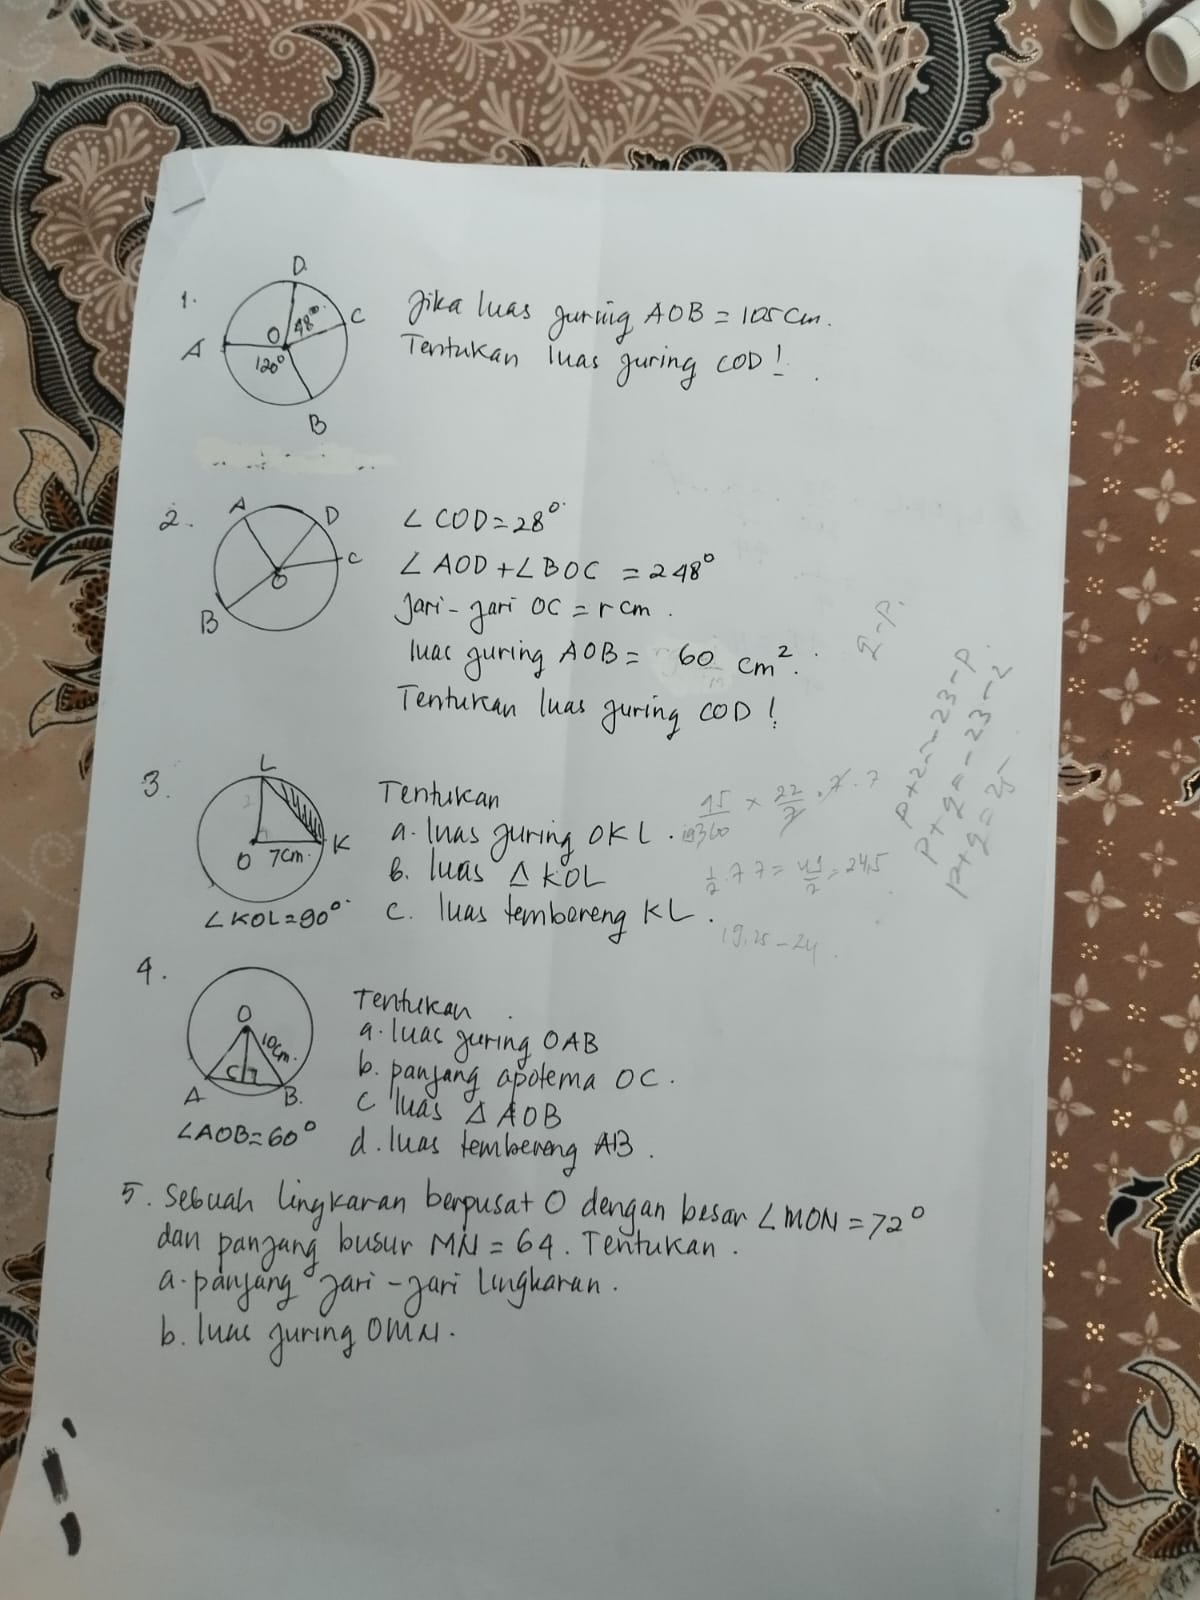 1.
D.
C
A
O
48°
120°
B
Jika luas juring AOB = 105 cm.
Tentukan luas juring COD!
2.
A
D
C
O
B
∠ COD = 28°
∠ AOD + ∠ BOC = 248°
Jari-jari OC = r cm.
luas juring AOB = 60 cm².
Tentukan luas juring COD!
3.
L
O
7cm.
K
∠KOL=90°
Tentukan
a. luas juring OKL.
b. luas △ KOL
c. luas tembereng KL.
× 22/7 . 7 . 7
1/2 . 7 7 = 49/2 = 24,5
19,25 - 24
p + q = 25
4.
O
10cm.
C
A
B.
∠AOB=60°
Tentukan
a. luas juring OAB
b. panjang apotema OC.
c luas △ AOB
d. luas tembereng AB.
5. Sebuah lingkaran berpusat O dengan besar ∠MON = 72°
dan panjang busur MN = 64. Tentukan.
a. panjang jari-jari lingkaran.
b. luas juring OMN.